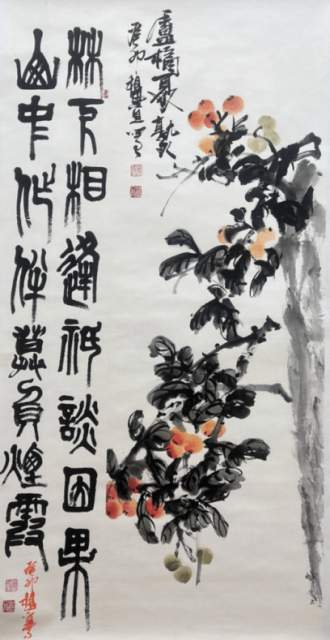 盧橘夏熟
癸卯
林下相逢祇談因果
山中作伴莫負煙霞
癸卯